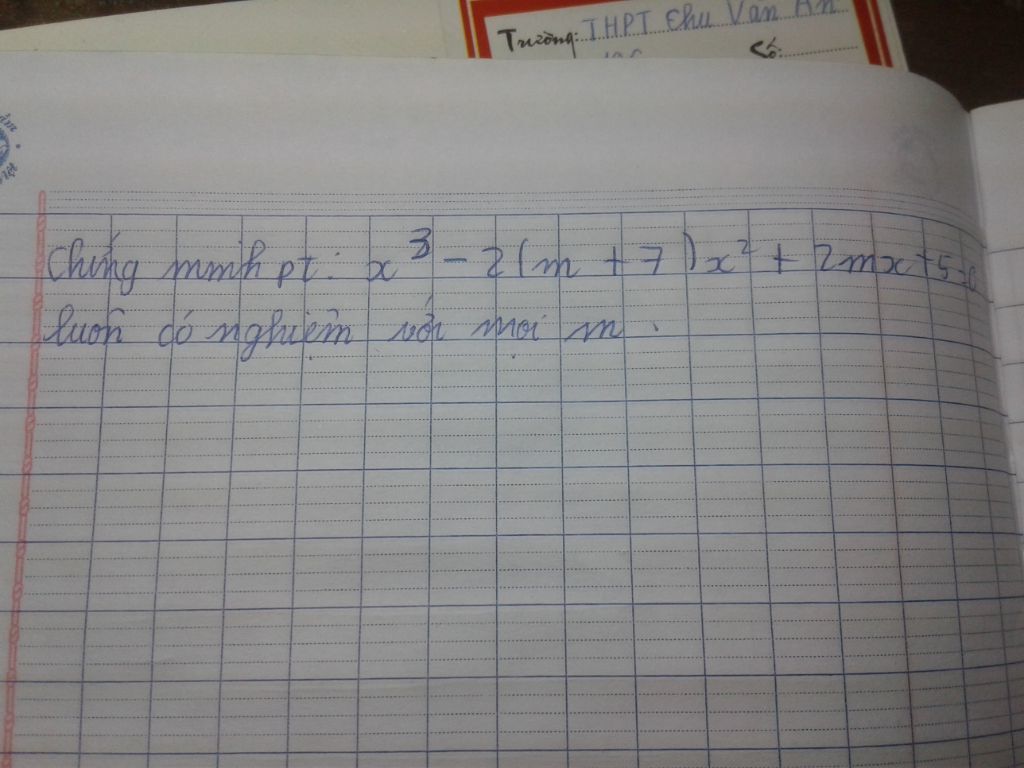 Trường: THPT Chu Văn An
Số:
Chứng minh pt: x³ - 2(m + 7)x² + 2mx + 5 = 0
luôn có nghiệm với mọi m.